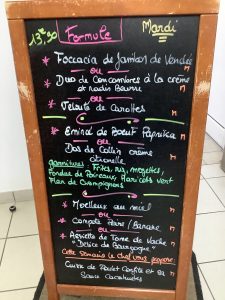 13€90 Formule Mardi
* Foccacia de Jambon de Vendée
ou
* Duo de Concombres à la crème
et radis Beurre
ou
* Velouté de Carottes
* Emincé de Boeuf Paprika
ou
Dos de Collin crème
garnitures : Frites, riz, mogettes,
Fondue de Poireaux, Haricots vert
Flan de Champignons
* Moelleux au miel
ou
* Compote Poire / Banane
ou
* Assiette de Tome de Vache
"Délice de Bourgogne"
Cette semaine le chef vous propose
Cuisse de Poulet Confite et sa
Sauce Cacahuètes